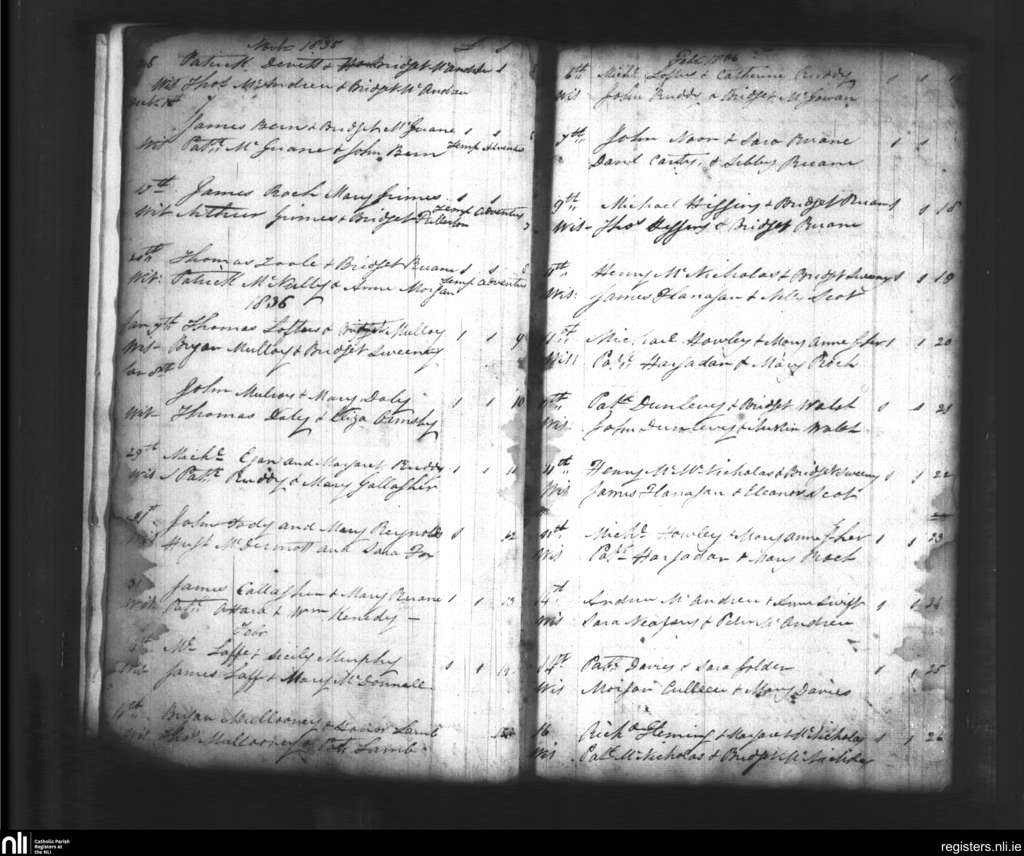 Novr 1835
Patrick Devitt & Bridget
Wis Thos McAndrew & Bridget McAndrew
James Bern & Bridget McGuane 1 1
Wit Patk McGuane & John Bern Temp Adventus
10th James Roch Mary Grimes 1 1
Wit Arthur Grimes & Bridget Fullerton Temp Adventus
20th Thomas Toole & Bridget Ruane 1 1
Wit: Patrick McNulty & Anne Morgan Temp Adventus
1836
Jan 7th Thomas Loftus & Bridget Mulloy 1 1 9
Wis- Bryan Mulloy & Bridget Sweeney
John Mulroy & Mary Daly 1 1 10
Wit- Thomas Daly & Eliza Ormsby
29th Michl Egan and Margaret Ruddy 1 1 11
Wis Patk Ruddy & Mary Gallagher
John Tody and Mary Reynolds 1 12
Hugh McDermott and Sara Fox
31 James Gallagher & Mary Ruane 1 1 13
Patk O'Hara & Wm Kenedy
Febr
Mc Laffe & Sicily Murphy 1 1
James Laff & Mary McDonnell
Bryan Mullooney & Lamb
Wis Thos Mullooney & Patk Lamb
Feb 1836
6th Michl Loftus & Catherine Ruddy 1 1
Wis John Ruddy & Bridget McGowan
7th John Noon & Sara Ruane 1 1
David Canty & Sibby Ruane
9th Michael Higgins & Bridget Ruane 1 1 18
Wis- Thos Higgins & Bridget Ruane
11th Henry McNicholas & Bridget Sweeny 1 1 19
Wis: James Flanagan & Nelly Scot
11th Michael Howley & Mary Anne Gher 1 1 20
Wis: Patk Hargadan & Mary Roch
11th Patk Dunlevy & Bridget Walsh 1 1 21
Wis John Dunlevy & Walsh
11th Henry McNicholas & Bridget Sweeny 1 1 22
Wis James Flanagan & Eleanor Scot
11th Michl Howley & Mary Anne Gher 1 1 23
Wis Patk Hargadan & Mary Roch
14th Andrew McAndrew & Anne Swift 1 1 24
Wis Sara Neapsey & Peter McAndrew
14th Patk Davies & Sara Golden 1 1 25
Wis Morgan Culleen & Mary Davies
16 Richd Fleming & Margaret McNicholas 1 1 26
Wis Patk McNicholas & Bridget McNicholas
nli
Catholic Parish
Registers at
the NLI
registers.nli.ie